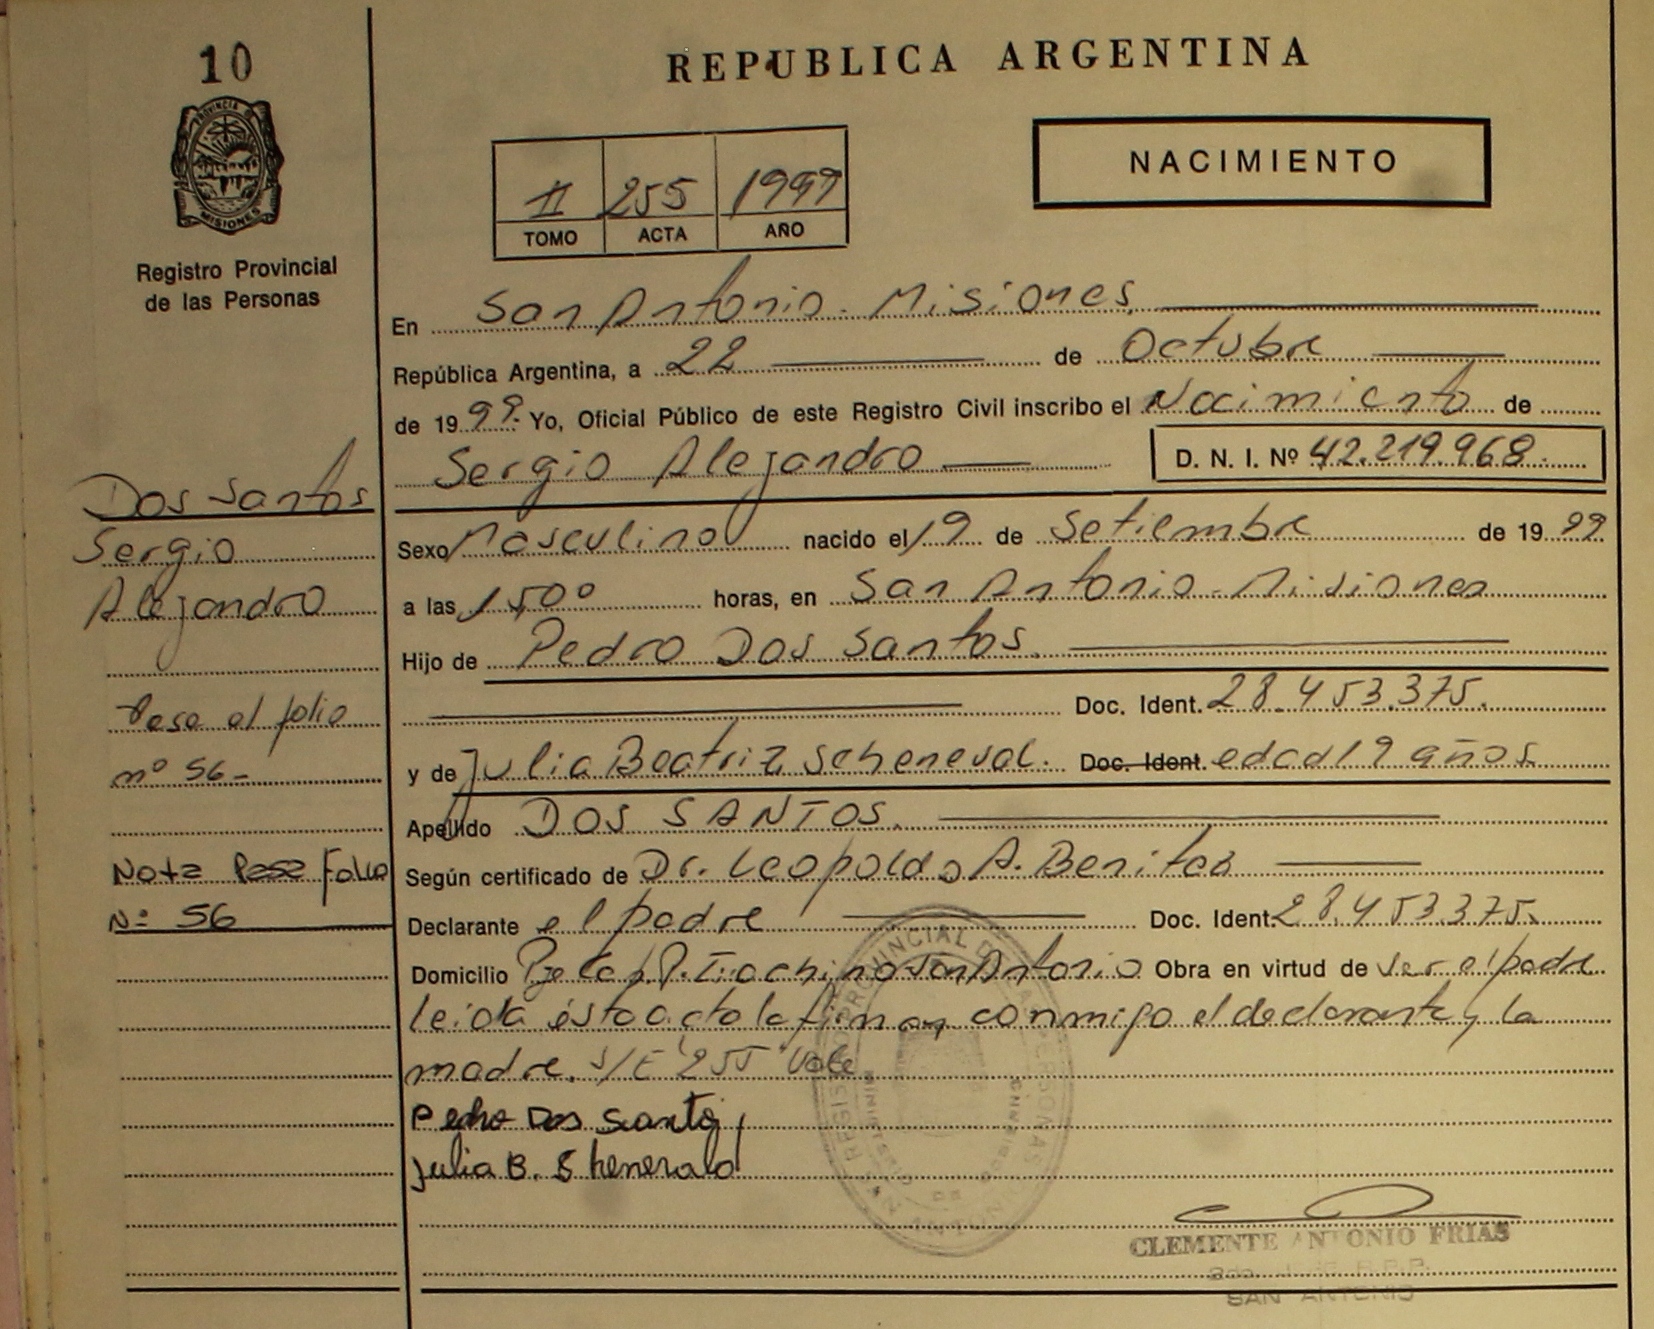 10
PROVINCIA
MISIONES
Registro Provincial
de las Personas
REPUBLICA ARGENTINA
NACIMIENTO
II 255 1999
TOMO ACTA AÑO
En San Antonio - Misiones,
República Argentina, a 22 de Octubre
de 1999. Yo, Oficial Público de este Registro Civil inscribo el Nacimiento de
Sergio Alejandro D. N. I. Nº 42.219.968.
Dos Santos
Sergio
Alejandro
Sexo Masculino nacido el 19 de Setiembre de 1999
a las 1,50º horas, en San Antonio - Misiones
Hijo de Pedro Dos Santos.
Doc. Ident. 28.453.375.
y de Julia Beatriz Scheneval. Doc. Ident. edad 19 años
Apellido DOS SANTOS.
Según certificado de Dr. Leopoldo A. Benitez
Declarante el padre Doc. Ident. 28.453.375.
Domicilio San Antonio Obra en virtud de ser el padre
leida ésta acta la firman conmigo el declarante y la
madre. S/E 255 Vale
Pedro Dos Santos
Julia B.
Pase al folio
nº 56-
Nota Pase Folio
Nº 56
CLEMENTE ANTONIO FRIAS
SAN ANTONIO